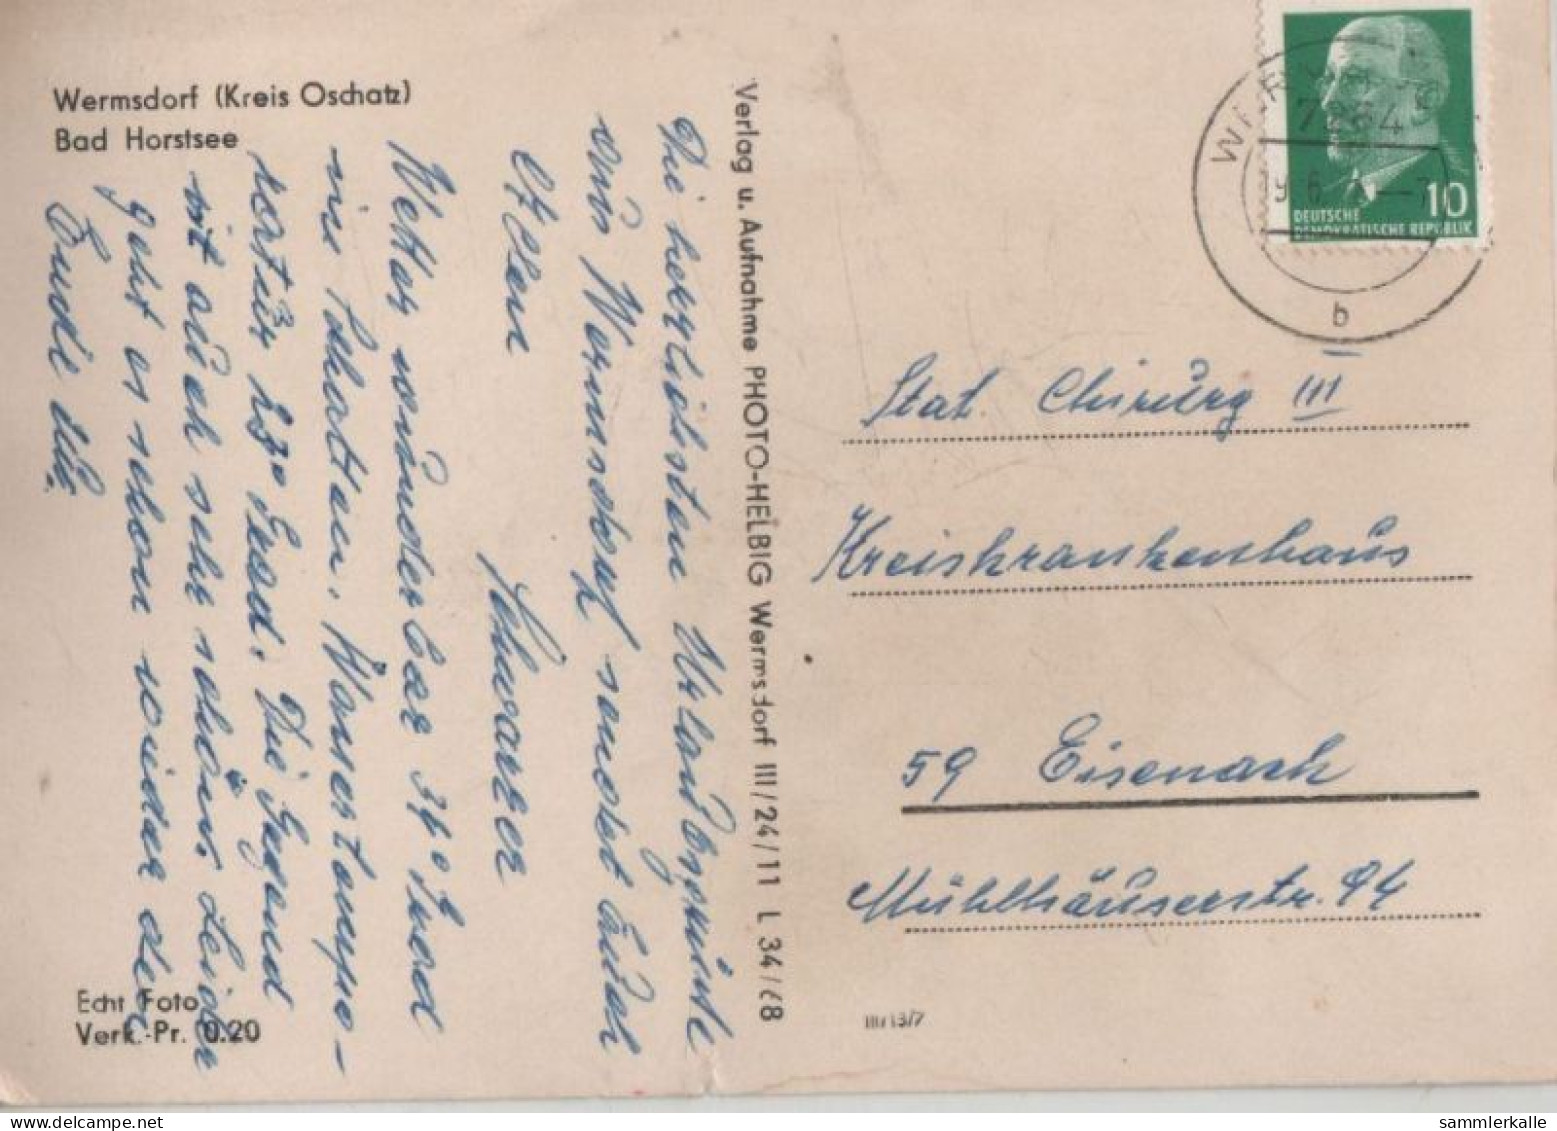 Wermsdorf (Kreis Oschatz)
Bad Horstsee
Die herzlichsten Urlaubsgrüße
aus Wermsdorf sendet Euch
Schwarzer
Wetter wunderbar 34° Grad
im Schatten. Wassertempe-
ratur 23° Grad. Die Gegend
ist auch sehr schön. Leider
geht es schon wieder dem
Ende zu.
Echt Foto
Verk.-Pr. 0.20
Verlag u. Aufnahme PHOTO-HELBIG Wermsdorf III/24/11 L 34/68
10
DEUTSCHE
DEMOKRATISCHE REPUBLIK
7264
b
Stat. Chirurg III
Kreiskrankenhaus
59 Eisenach
Mühlhäuserstr. 94
III/13/7
sammlerkalle